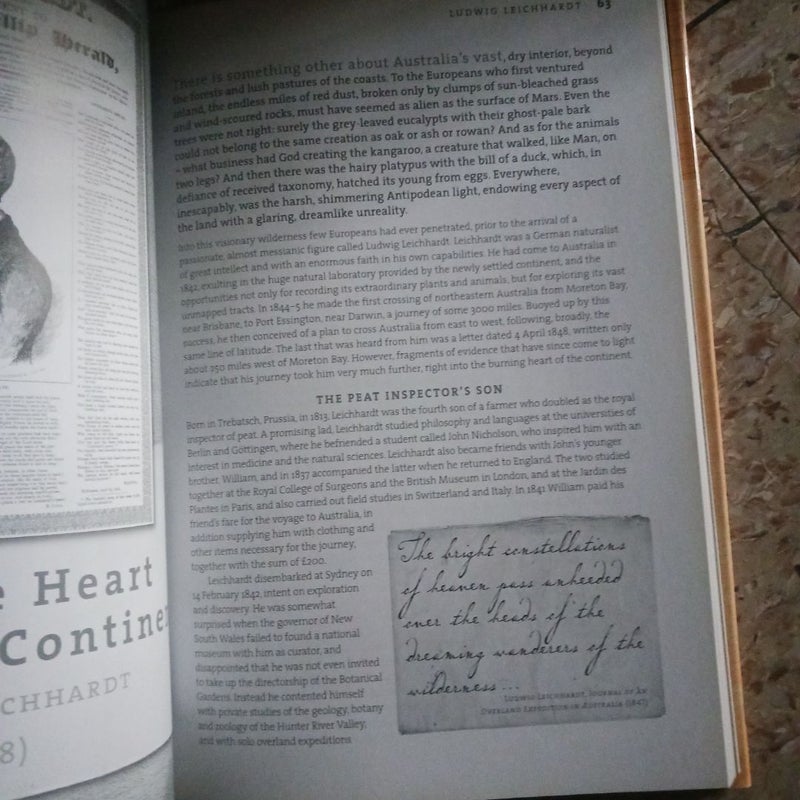 llip Herald,
e Heart
Contine
CHHARDT
8)
LUDWIG LEICHHARDT 63
There is something other about Australia's vast, dry interior, beyond
the forests and lush pastures of the coasts. To the Europeans who first ventured
inland, the endless miles of red dust, broken only by clumps of sun-bleached grass
and wind-scoured rocks, must have seemed as alien as the surface of Mars. Even the
trees were not right: surely the grey-leaved eucalypts with their ghost-pale bark
could not belong to the same creation as oak or ash or rowan? And as for the animals
– what business had God creating the kangaroo, a creature that walked, like Man, on
two legs? And then there was the hairy platypus with the bill of a duck, which, in
defiance of received taxonomy, hatched its young from eggs. Everywhere,
inescapably, was the harsh, shimmering Antipodean light, endowing every aspect of
the land with a glaring, dreamlike unreality.
Into this visionary wilderness few Europeans had ever penetrated, prior to the arrival of a
passionate, almost messianic figure called Ludwig Leichhardt. Leichhardt was a German naturalist
of great intellect and with an enormous faith in his own capabilities. He had come to Australia in
1842, exulting in the huge natural laboratory provided by the newly settled continent, and the
opportunities not only for recording its extraordinary plants and animals, but for exploring its vast
unmapped tracts. In 1844–5 he made the first crossing of northeastern Australia from Moreton Bay,
near Brisbane, to Port Essington, near Darwin, a journey of some 3000 miles. Buoyed up by this
success, he then conceived of a plan to cross Australia from east to west, following, broadly, the
same line of latitude. The last that was heard from him was a letter dated 4 April 1848, written only
about 250 miles west of Moreton Bay. However, fragments of evidence that have since come to light
indicate that his journey took him very much further, right into the burning heart of the continent.
THE PEAT INSPECTOR'S SON
Born in Trebatsch, Prussia, in 1813, Leichhardt was the fourth son of a farmer who doubled as the royal
inspector of peat. A promising lad, Leichhardt studied philosophy and languages at the universities of
Berlin and Göttingen, where he befriended a student called John Nicholson, who inspired him with an
interest in medicine and the natural sciences. Leichhardt also became friends with John's younger
brother, William, and in 1837 accompanied the latter when he returned to England. The two studied
together at the Royal College of Surgeons and the British Museum in London, and at the Jardin des
Plantes in Paris, and also carried out field studies in Switzerland and Italy. In 1841 William paid his
friend's fare for the voyage to Australia, in
addition supplying him with clothing and
other items necessary for the journey,
together with the sum of £200.
Leichhardt disembarked at Sydney on
14 February 1842, intent on exploration
and discovery. He was somewhat
surprised when the governor of New
South Wales failed to found a national
museum with him as curator, and
disappointed that he was not even invited
to take up the directorship of the Botanical
Gardens. Instead he contented himself
with private studies of the geology, botany
and zoology of the Hunter River Valley,
and with solo overland expeditions
The bright constellations
of heaven pass unheeded
over the heads of the
dreaming wanderers of the
wilderness ...
LUDWIG LEICHHARDT, JOURNAL OF AN
OVERLAND EXPEDITION IN AUSTRALIA (1847)